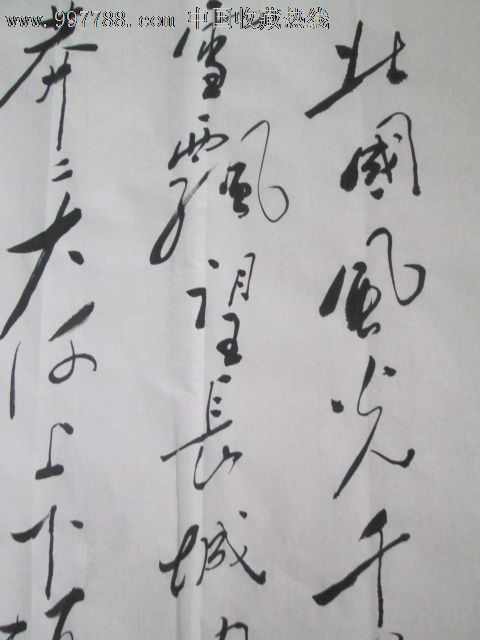 www.997788.com 中国收藏热线
北國風光千
雪飄望長城
莽〻大河上下